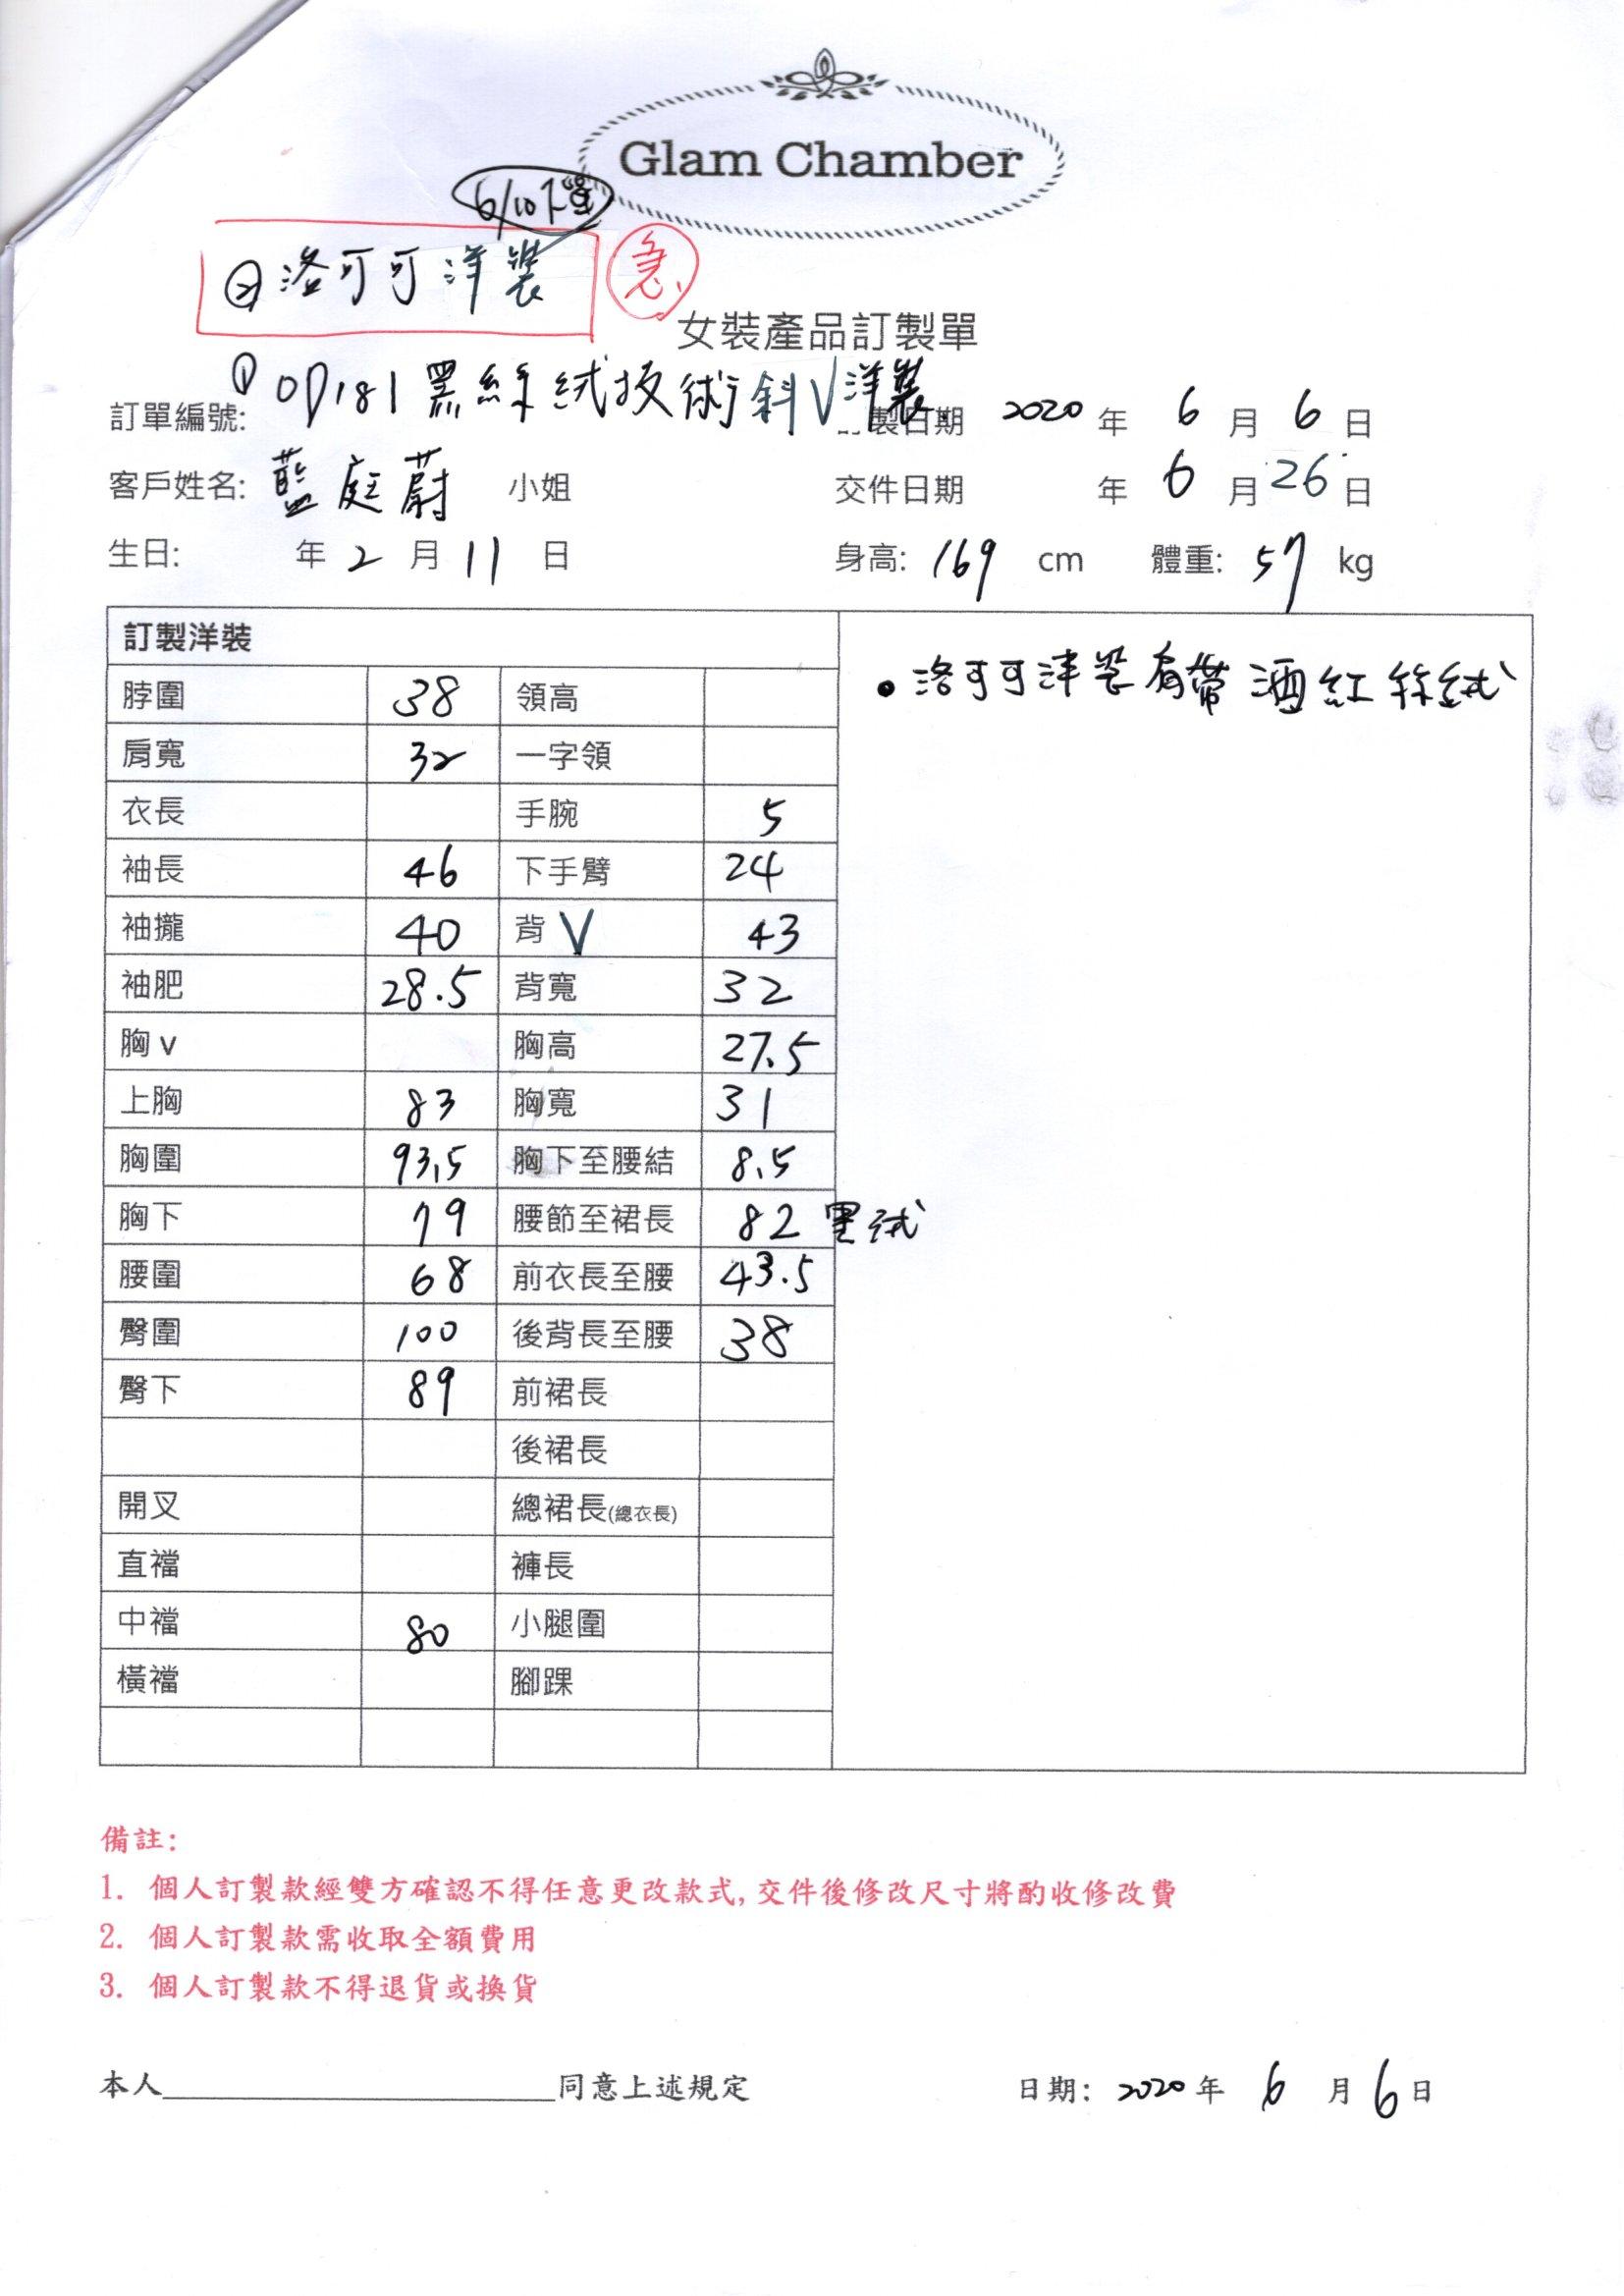 Glam Chamber
6/10下單
②洛可可洋裝 急
女裝產品訂製單
①OP181黑絲絨技術斜V洋裝
訂單編號: 製日期 2020 年 6 月 6 日
客戶姓名: 藍庭蔚 小姐 交件日期 年 6 月 26 日
生日: 年 2 月 11 日 身高: 169 cm 體重: 57 kg
訂製洋裝
•洛可可洋裝有帶酒紅絲絨
脖圍 38 領高
肩寬 32 一字領
衣長 手腕 5
袖長 46 下手臂 24
袖攏 40 背 V 43
袖肥 28.5 背寬 32
胸 v 胸高 27.5
上胸 83 胸寬 31
胸圍 93.5 胸下至腰結 8.5
胸下 79 腰節至裙長 82 黑絨
腰圍 68 前衣長至腰 43.5
臀圍 100 後背長至腰 38
臀下 89 前裙長
後裙長
開叉 總裙長(總衣長)
直襠 褲長
中襠 80 小腿圍
橫襠 腳踝
備註:
1. 個人訂製款經雙方確認不得任意更改款式,交件後修改尺寸將酌收修改費
2. 個人訂製款需收取全額費用
3. 個人訂製款不得退貨或換貨
本人____________________同意上述規定 日期: 2020 年 6 月 6 日